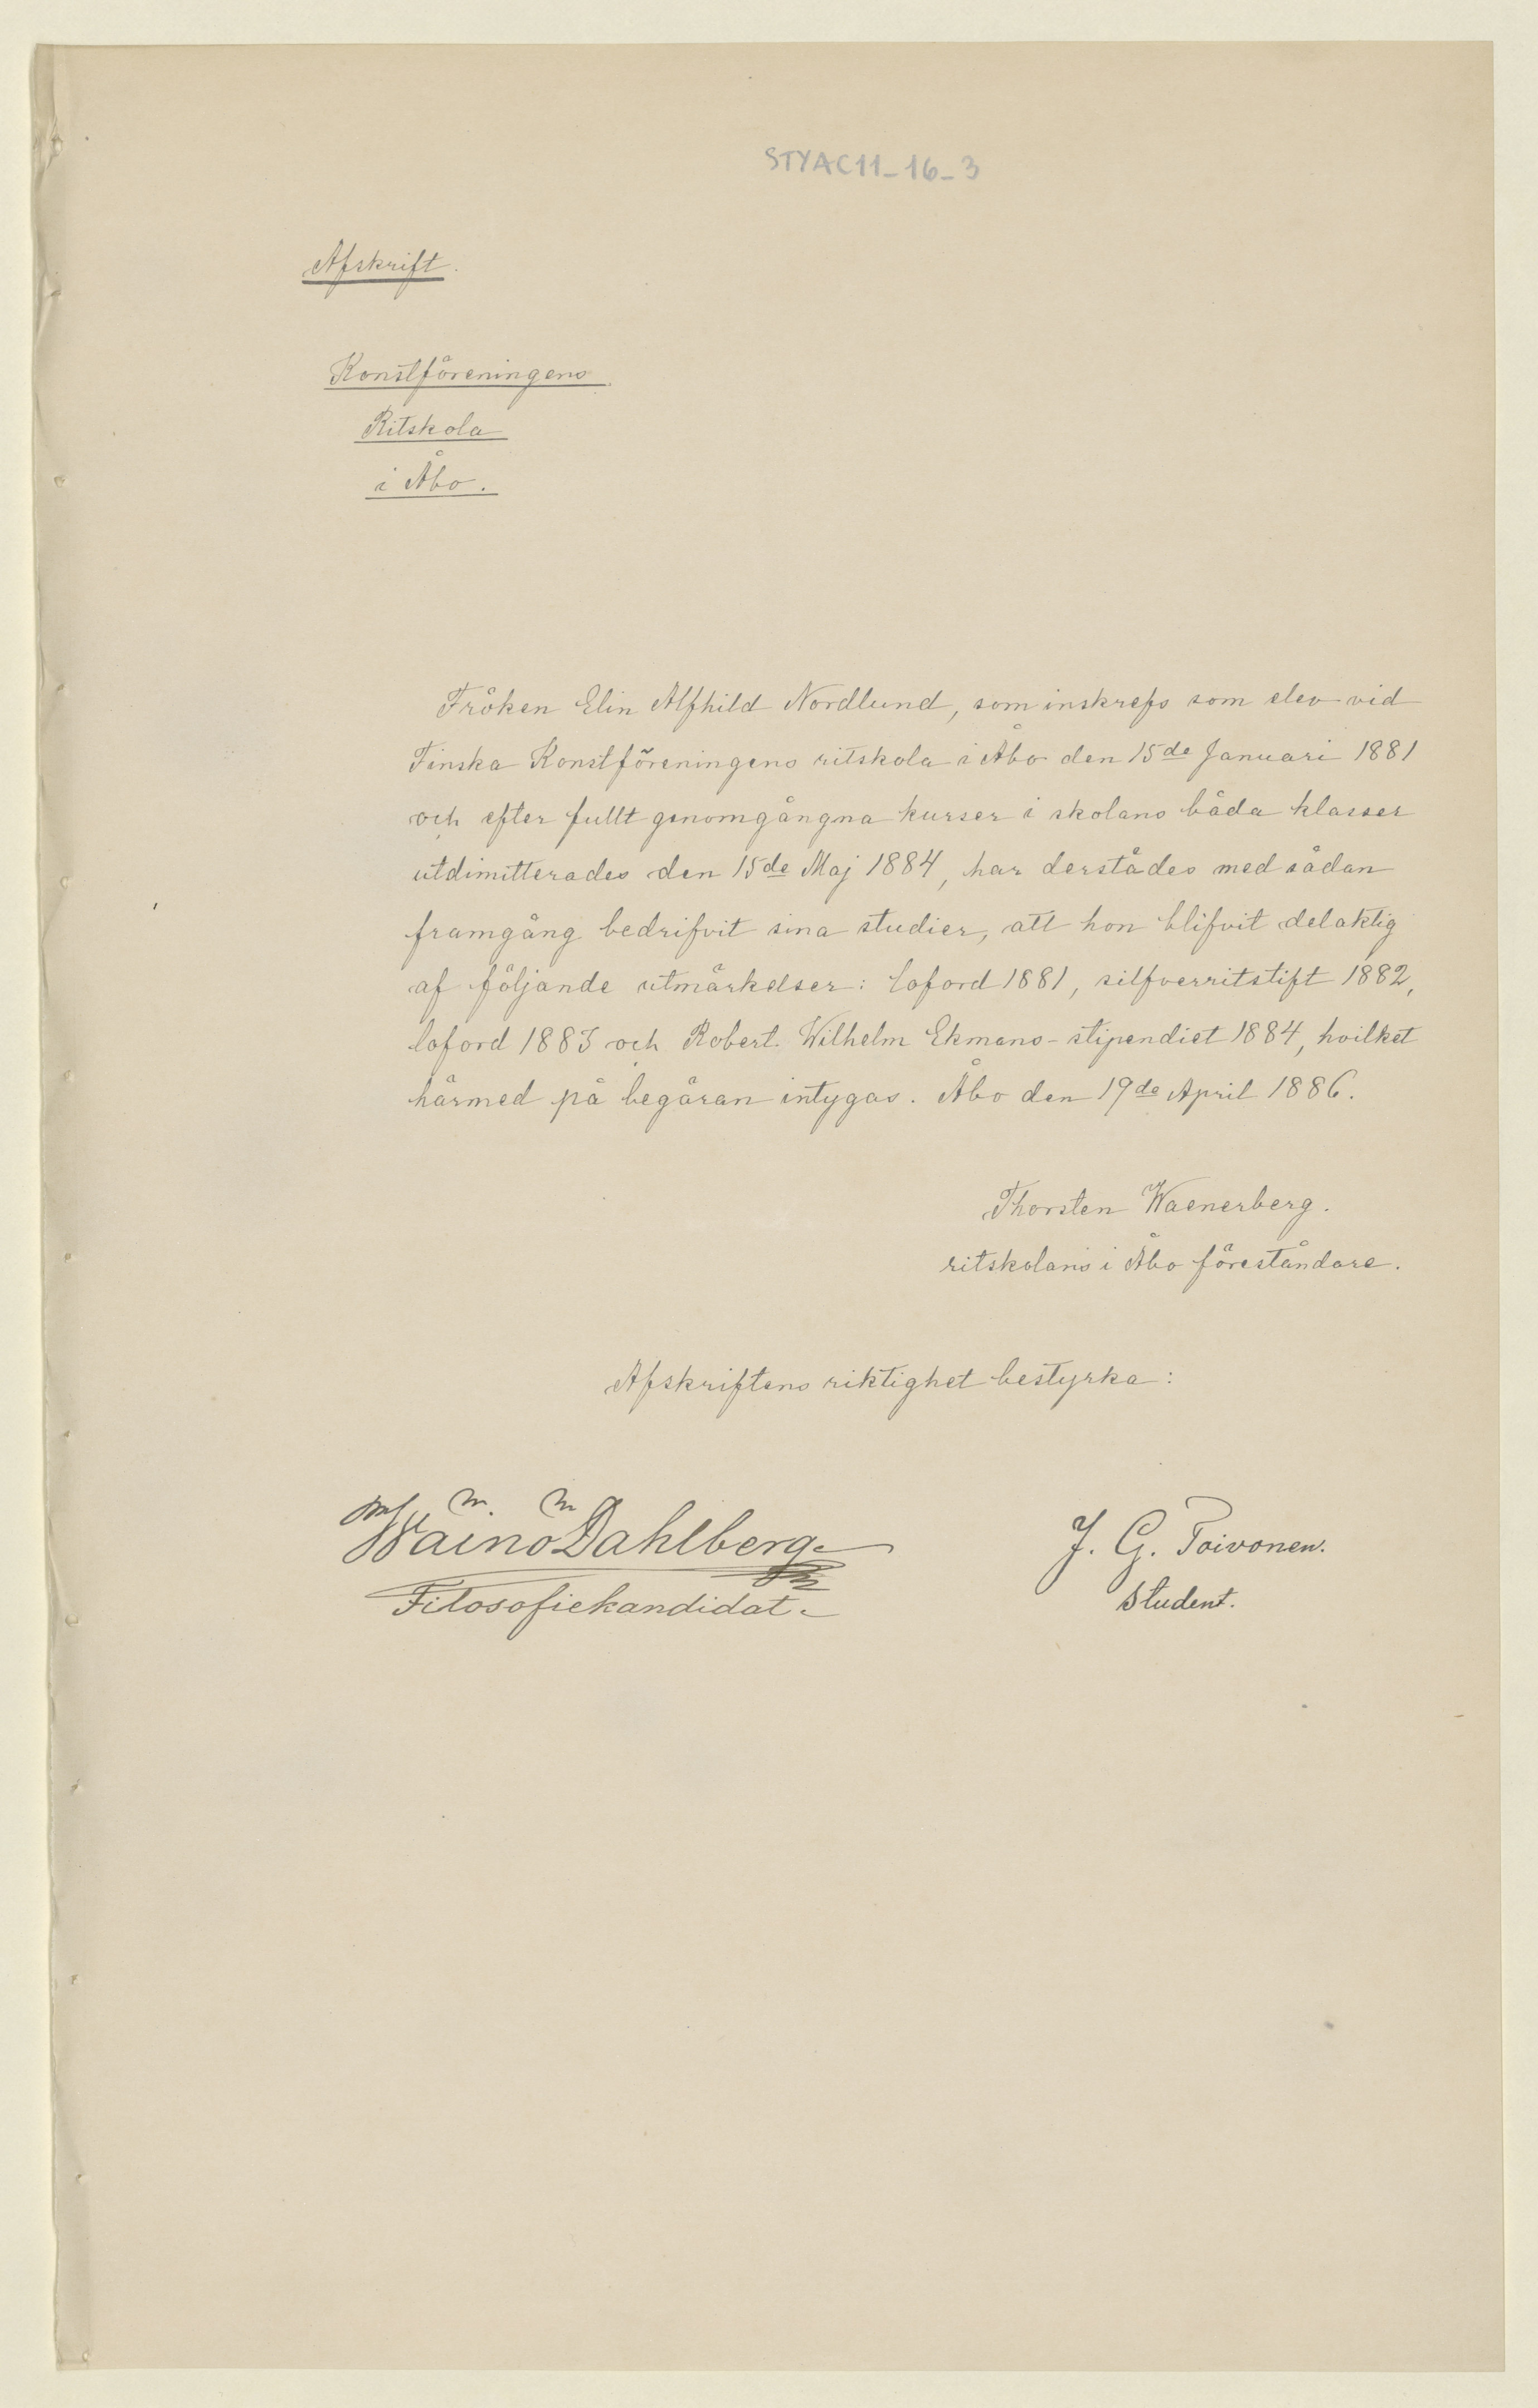 STYAC11_16_3
Afskrift.
Konstföreningens
Ritskola
i Åbo.
Fröken Elin Alfhild Nordlund, som inskrefs som elev vid
Finska Konstföreningens ritskola i Åbo den 15de Januari 1881
och efter fullt genomgångna kurser i skolans båda klasser
utdimitterades den 15de Maj 1884, har derstädes med sådan
framgång bedrifvit sina studier, att hon blifvit delaktig
af följande utmärkelser: loford 1881, silfverritstift 1882,
loford 1883 och Robert Wilhelm Ekmans-stipendiet 1884, hvilket
härmed på begäran intygas. Åbo den 19de April 1886.
Thorsten Waenerberg.
ritskolans i Åbo föreståndare.
Afskriftens riktighet bestyrka:
Wäinö Dahlberg
J. G. Toivonen.
Filosofiekandidat.
Student.